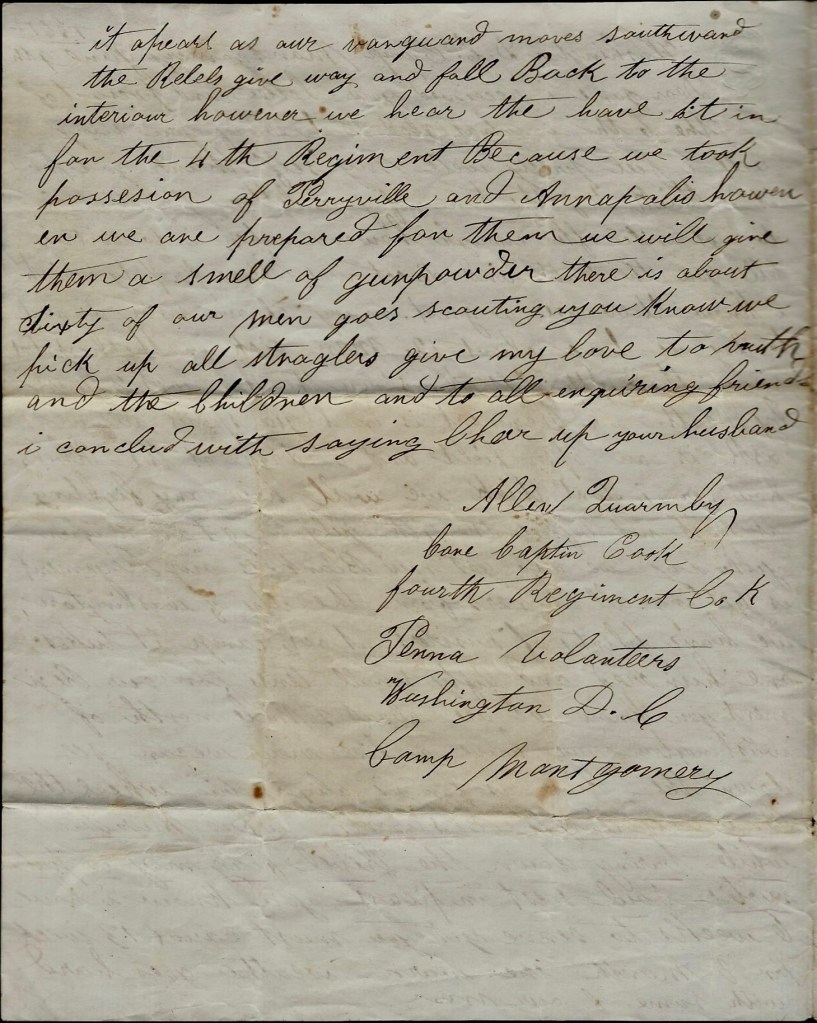 it apears as our vanguard moves southward
the Rebels give way and fall Back to the
interiour however we hear the have it in
for the 4th Regiment Because we took
possesion of Perryville and Annapolis howev
er we are prepared for them we will give
them a smell of gunpowder there is about
sixty of our men goes scouting you know we
pick up all straglers give my love to ruth
and the Children and to all enquiring friends
i conclud with saying Chear up your husband
Allen Quarmby
Care Captin Cook
fourth Regiment Co K
Penna Volanteers
Washington D. C
Camp Montgomery